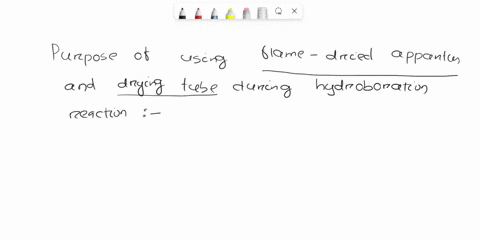 Purpose of using flame-dried apparatus
and drying tube during hydroboration
reaction :-